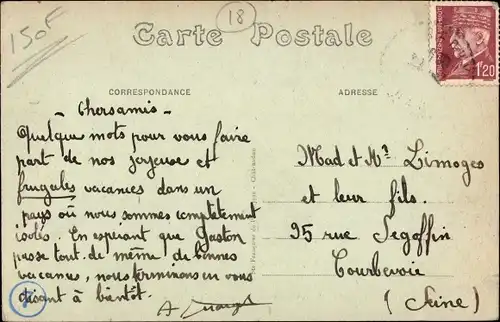 150F
18
Carte Postale
1'20
CORRESPONDANCE
ADRESSE
- Chers amis -
Quelque mots pour vous faire
part de nos joyeuse et
frugales vacances dans un
pays où nous sommes complètement
isolés. En espérant que Gaston
passe tout de même de bonnes
vacances, nous terminons en vous
disant à bientôt.
Mad et Mr Limoges
et leur fils.
35 rue Segoffin
Courbevoie
(Seine)